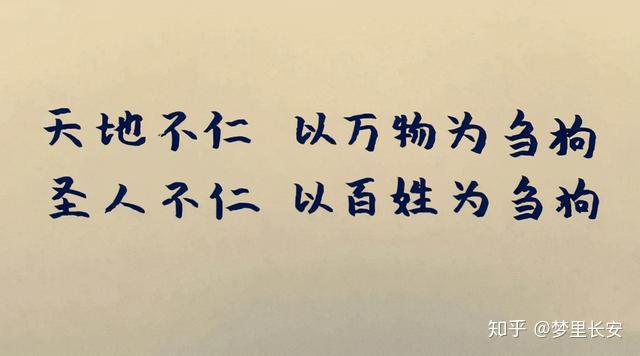 天地不仁 以万物为刍狗
圣人不仁 以百姓为刍狗
知乎 @梦里长安